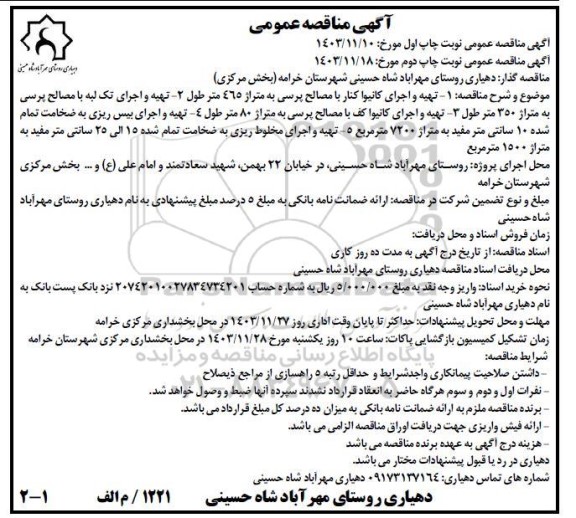 آگهی مناقصه عمومی
دهیاری روستای مهرآباد شاه حسینی
آگهی مناقصه عمومی نوبت چاپ اول مورخ: ۱۴۰۳/۱۱/۱۰
آگهی مناقصه عمومی نوبت چاپ دوم مورخ: ۱۴۰۳/۱۱/۱۸
مناقصه گذار: دهیاری روستای مهراباد شاه حسینی شهرستان خرامه (بخش مرکزی)
موضوع و شرح مناقصه: ۱- تهیه و اجرای کانیوا کنار با مصالح پرسی به متراژ ۴۶۵ متر طول ۲- تهیه و اجرای تک لبه با مصالح پرسی
به متراژ ۳۵۰ متر طول ۳- تهیه و اجرای کانیوا کف با مصالح پرسی به متراژ ۸۰ متر طول ۴- تهیه و اجرای بیس ریزی به ضخامت تمام
شده ۱۰ سانتی متر مفید به متراژ ۷۲۰۰ مترمربع ۵- تهیه و اجرای مخلوط ریزی به ضخامت تمام شده ۱۵ الی ۲۵ سانتی متر مفید به
متراژ ۱۵۰۰ مترمربع
محل اجرای پروژه: روستای مهرآباد شاه حسینی، در خیابان ۲۲ بهمن، شهید سعادتمند و امام علی (ع) و ... بخش مرکزی
شهرستان خرامه
مبلغ و نوع تضمین شرکت در مناقصه: ارائه ضمانت نامه بانکی به مبلغ ۵ درصد مبلغ پیشنهادی به نام دهیاری روستای مهرآباد
شاه حسینی
زمان فروش اسناد و محل دریافت:
اسناد مناقصه: از تاریخ درج آگهی به مدت ده روز کاری
محل دریافت اسناد مناقصه دهیاری روستای مهرآباد شاه حسینی
نحوه خرید اسناد: واریز وجه نقد به مبلغ ۵/۰۰۰/۰۰۰ ریال به شماره حساب ۲۰۷۴۲۰۱۰۰۲۷۸۳۴۷۳۴۲۰۱ نزد بانک پست بانک به
نام دهیاری مهرآباد شاه حسینی
مهلت و محل تحویل پیشنهادات: حداکثر تا پایان وقت اداری روز ۱۴۰۳/۱۱/۲۷ در محل بخشداری مرکزی خرامه
زمان تشکیل کمیسیون بازگشایی پاکات: ساعت ۱۰ روز یکشنبه مورخ ۱۴۰۳/۱۱/۲۸ در محل بخشداری مرکزی شهرستان خرامه
شرایط مناقصه:
- داشتن صلاحیت پیمانکاری واجد شرایط و حداقل رتبه ۵ راهسازی از مراجع ذیصلاح
- نفرات اول و دوم و سوم هرگاه حاضر به انعقاد قرارداد نشدند سپرده آنها ضبط و وصول خواهد شد.
- برنده مناقصه ملزم به ارائه ضمانت نامه بانکی به میزان ده درصد کل مبلغ قرارداد می باشد.
- ارائه فیش واریزی جهت دریافت اوراق مناقصه الزامی می باشد.
- هزینه درج آگهی به عهده برنده مناقصه می باشد
دهیاری در رد یا قبول پیشنهادات مختار می باشد.
شماره های تماس دهیاری: ۰۹۱۷۳۱۳۷۱۶۴ دهیاری مهرآباد شاه حسینی
دهیاری روستای مهرآباد شاه حسینی
۱۲۲۱ / م الف
۲-۱